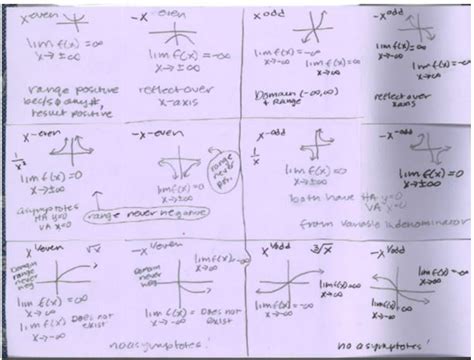 x^even
lim f(x) = ∞
x→±∞
range positive
bec sq any #,
result positive
-x^even
lim f(x) = -∞
x→±∞
reflect over
x-axis
x^odd
lim f(x) = ∞
x→∞
lim f(x) = -∞
x→-∞
Domain (-∞,∞)
+ Range
-x^odd
lim f(x) = ∞
x→-∞
lim f(x) = -∞
x→∞
reflect over
xaxis
x^-even
1/x²
lim f(x) = 0
x→±∞
asymptotes
HA y=0
VA x=0
range never negative
-x^-even
range
never
pos.
lim f(x) = 0
x→±∞
x^-odd
1/x
lim f(x) = 0
x→±∞
both have HA y=0
VA x=0
-x^-odd
lim f(x) = 0
x→±∞
from variable in denominator
x^1/even
√x
Domain
range
never
neg
lim f(x) = ∞
x→∞
lim f(x) = Does not
x→-∞ exist
-x^1/even
Domain
never
neg
lim f(x) = -∞
x→∞
lim f(x) = Does not
x→-∞ exist
no asymptotes!
x^1/odd
∛x
lim f(x) = ∞
x→∞
lim f(x) = -∞
x→-∞
-x^1/odd
lim f(x) = -∞
x→∞
lim f(x) = ∞
x→-∞
no asymptotes!